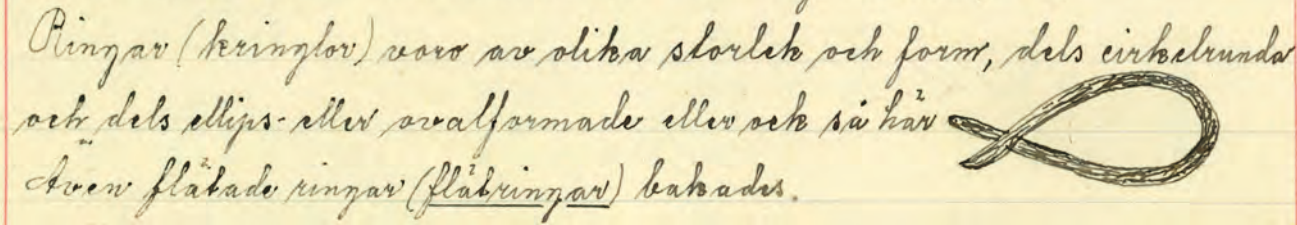 Ringar (kringlor) voro av olika storlek och form, dels cirkelrunda
och dels ellips- eller ovalformade eller ock så här
Även flätade ringar (flätringar) bakades.